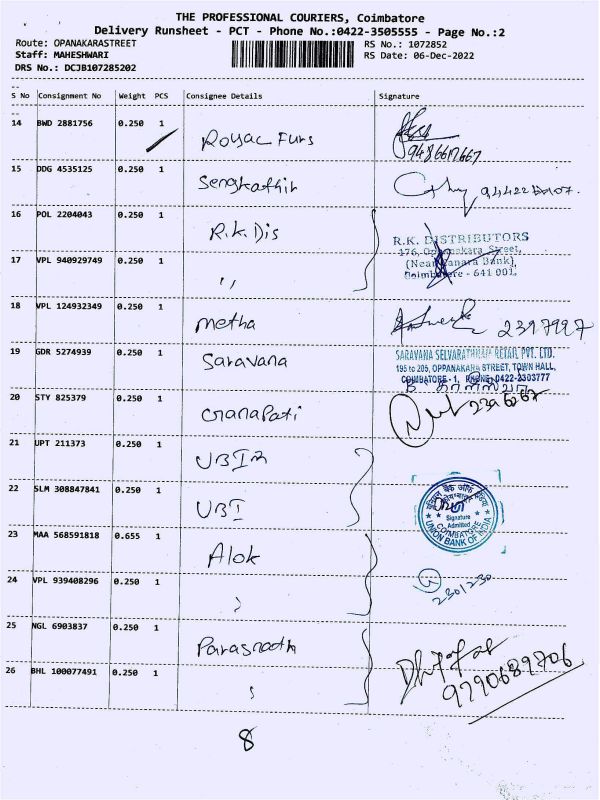 THE PROFESSIONAL COURIERS, Coimbatore
Delivery Runsheet - PCT - Phone No.:0422-3505555 - Page No.:2
Route: OPANAKARASTREET
RS No.: 1072852
Staff: MAHESHWARI
RS Date: 06-Dec-2022
DRS No.: DCJB107285202
S No Consignment No Weight PCS Consignee Details Signature
14 BWD 2881756 0.250 1
Royal Furs
9486617667
15 DDG 4535125 0.250 1
Sengkathir
16 POL 2204043 0.250 1
R.K. Dis
R.K. DISTRIBUTORS
176, Oppanakara Street,
(Near Canara Bank),
Coimbatore - 641 001.
17 VPL 940929749 0.250 1
,,
18 VPL 124932349 0.250 1
Metha
2397997
19 GDR 5274939 0.250 1
Saravana
SARAVANA SELVARATHNAM RETAIL PVT. LTD.
195 to 205, OPPANAKARA STREET, TOWN HALL,
COIMBATORE - 1, PHONE: 0422-2303777
20 STY 825379 0.250 1
Ganapati
21 UPT 211373 0.250 1
UBI
22 SLM 308847841 0.250 1
UBI
यूनियन बैंक ऑफ इंडिया
Signature
Admitted
COIMBATORE
UNION BANK OF INDIA
23 MAA 568591818 0.655 1
Alok
24 VPL 939408296 0.250 1
,
2301230
25 NGL 6903837 0.250 1
Parasnath
26 BHL 100077491 0.250 1
,
9790689706
8